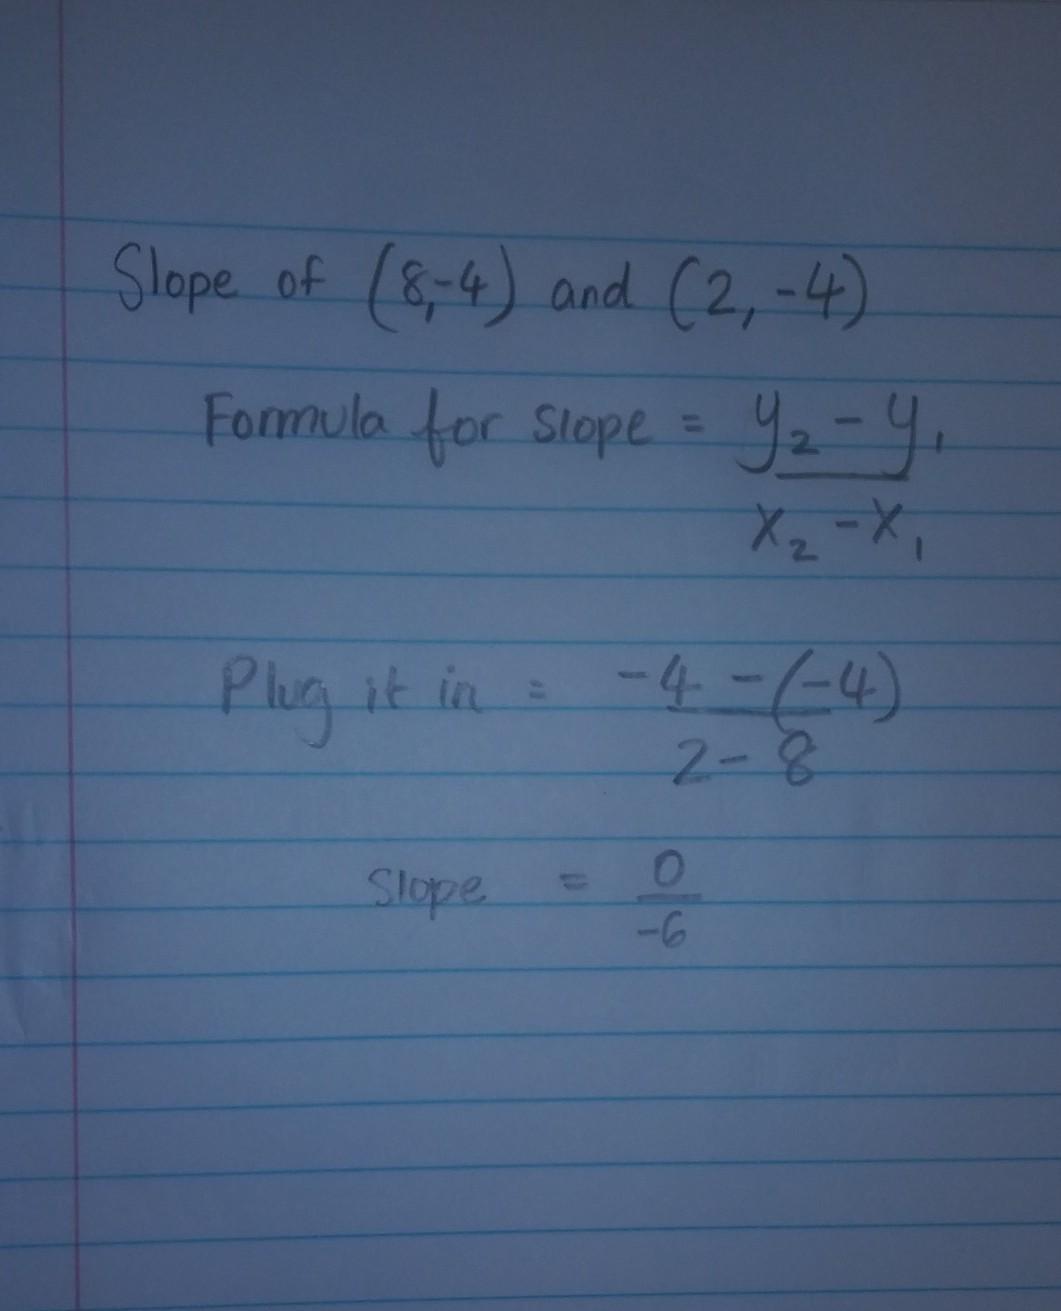 Slope of (8,-4) and (2, -4)
Formula for slope = y₂ - y₁
x₂ - x₁
Plug it in = -4 - (-4)
2 - 8
Slope = 0
-6